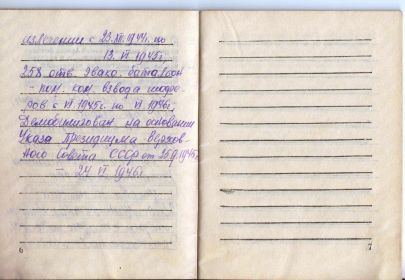 излечении с 23.XII.1944г. по
13. VI 1945г,
258 отв. эвако. батальон
- пом. ком. взвода шофе-
ров с VI 1945г. по VI 1946г,
Демобилизован на основании
Указа Президиума Верхов-
ного Совета СССР от 25.9.1945г
- 24 VI 1946г
6
7